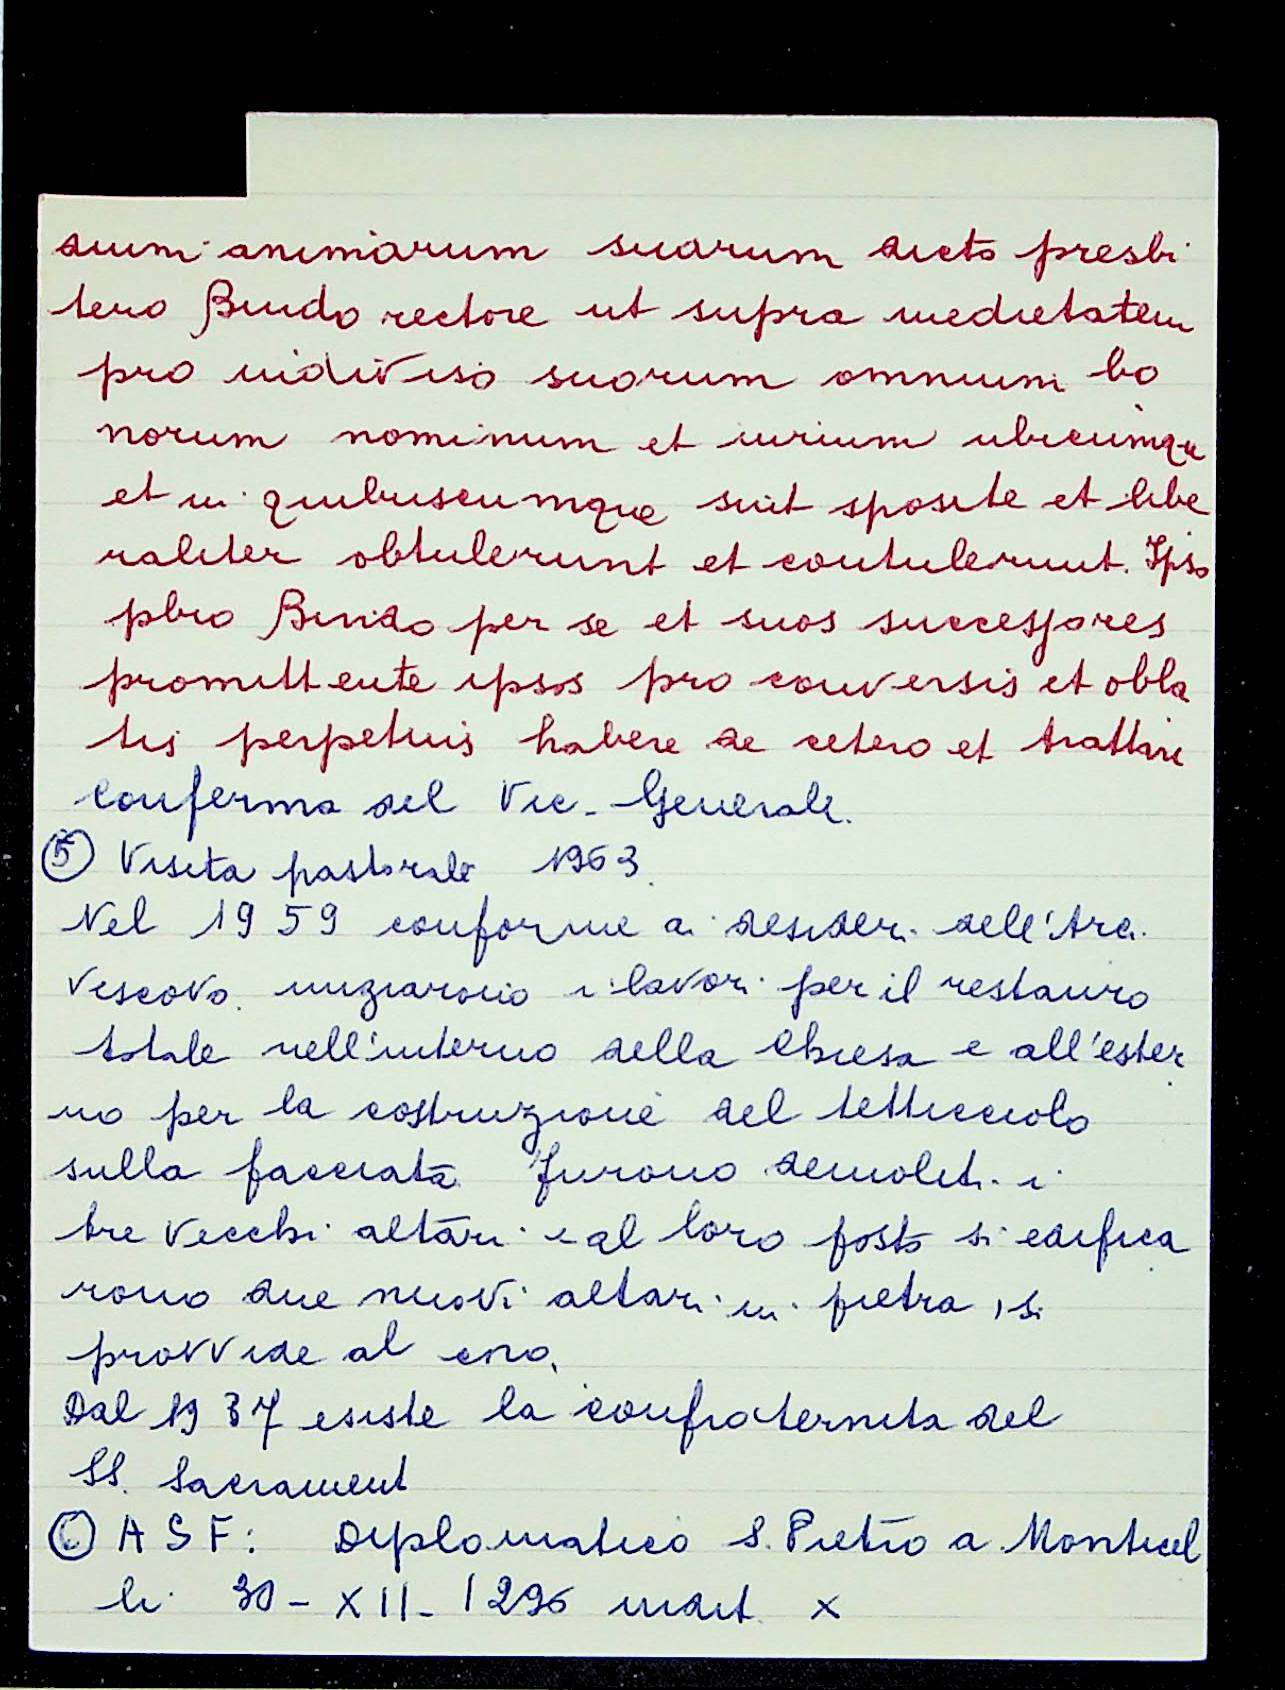 dium animarum suarum dicto presbi
tero Bindo rectore ut supra medietatem
pro indiviso suorum omnium bo
norum nominum et iurium ubicumque
et in quibuscumque sint sposite et libe
raliter obtulerunt et contulerunt. Ipso
pbro Bindo per se et suos successores
promittente ipsos pro conversis et obla
tis perpetuis habere de cetero et trattare
conferma del Vic. Generale.
5 Visita pastorale 1963.
Nel 1959 conforme ai desideri dell'Arci
vescovo iniziarono i lavori per il restauro
totale nell'interno della Chiesa e all'ester
no per la costruzione del tetticciolo
sulla facciata. Furono demoliti i
tre vecchi altari e al loro posto si edifica
rono due nuovi altari in pietra, si
provvide al
Dal 1937 esiste la confraternita del
SS. Sacrament
6 ASF: Diplomatico S. Pietro a Monticel
li 30-XII-1296 indit. X